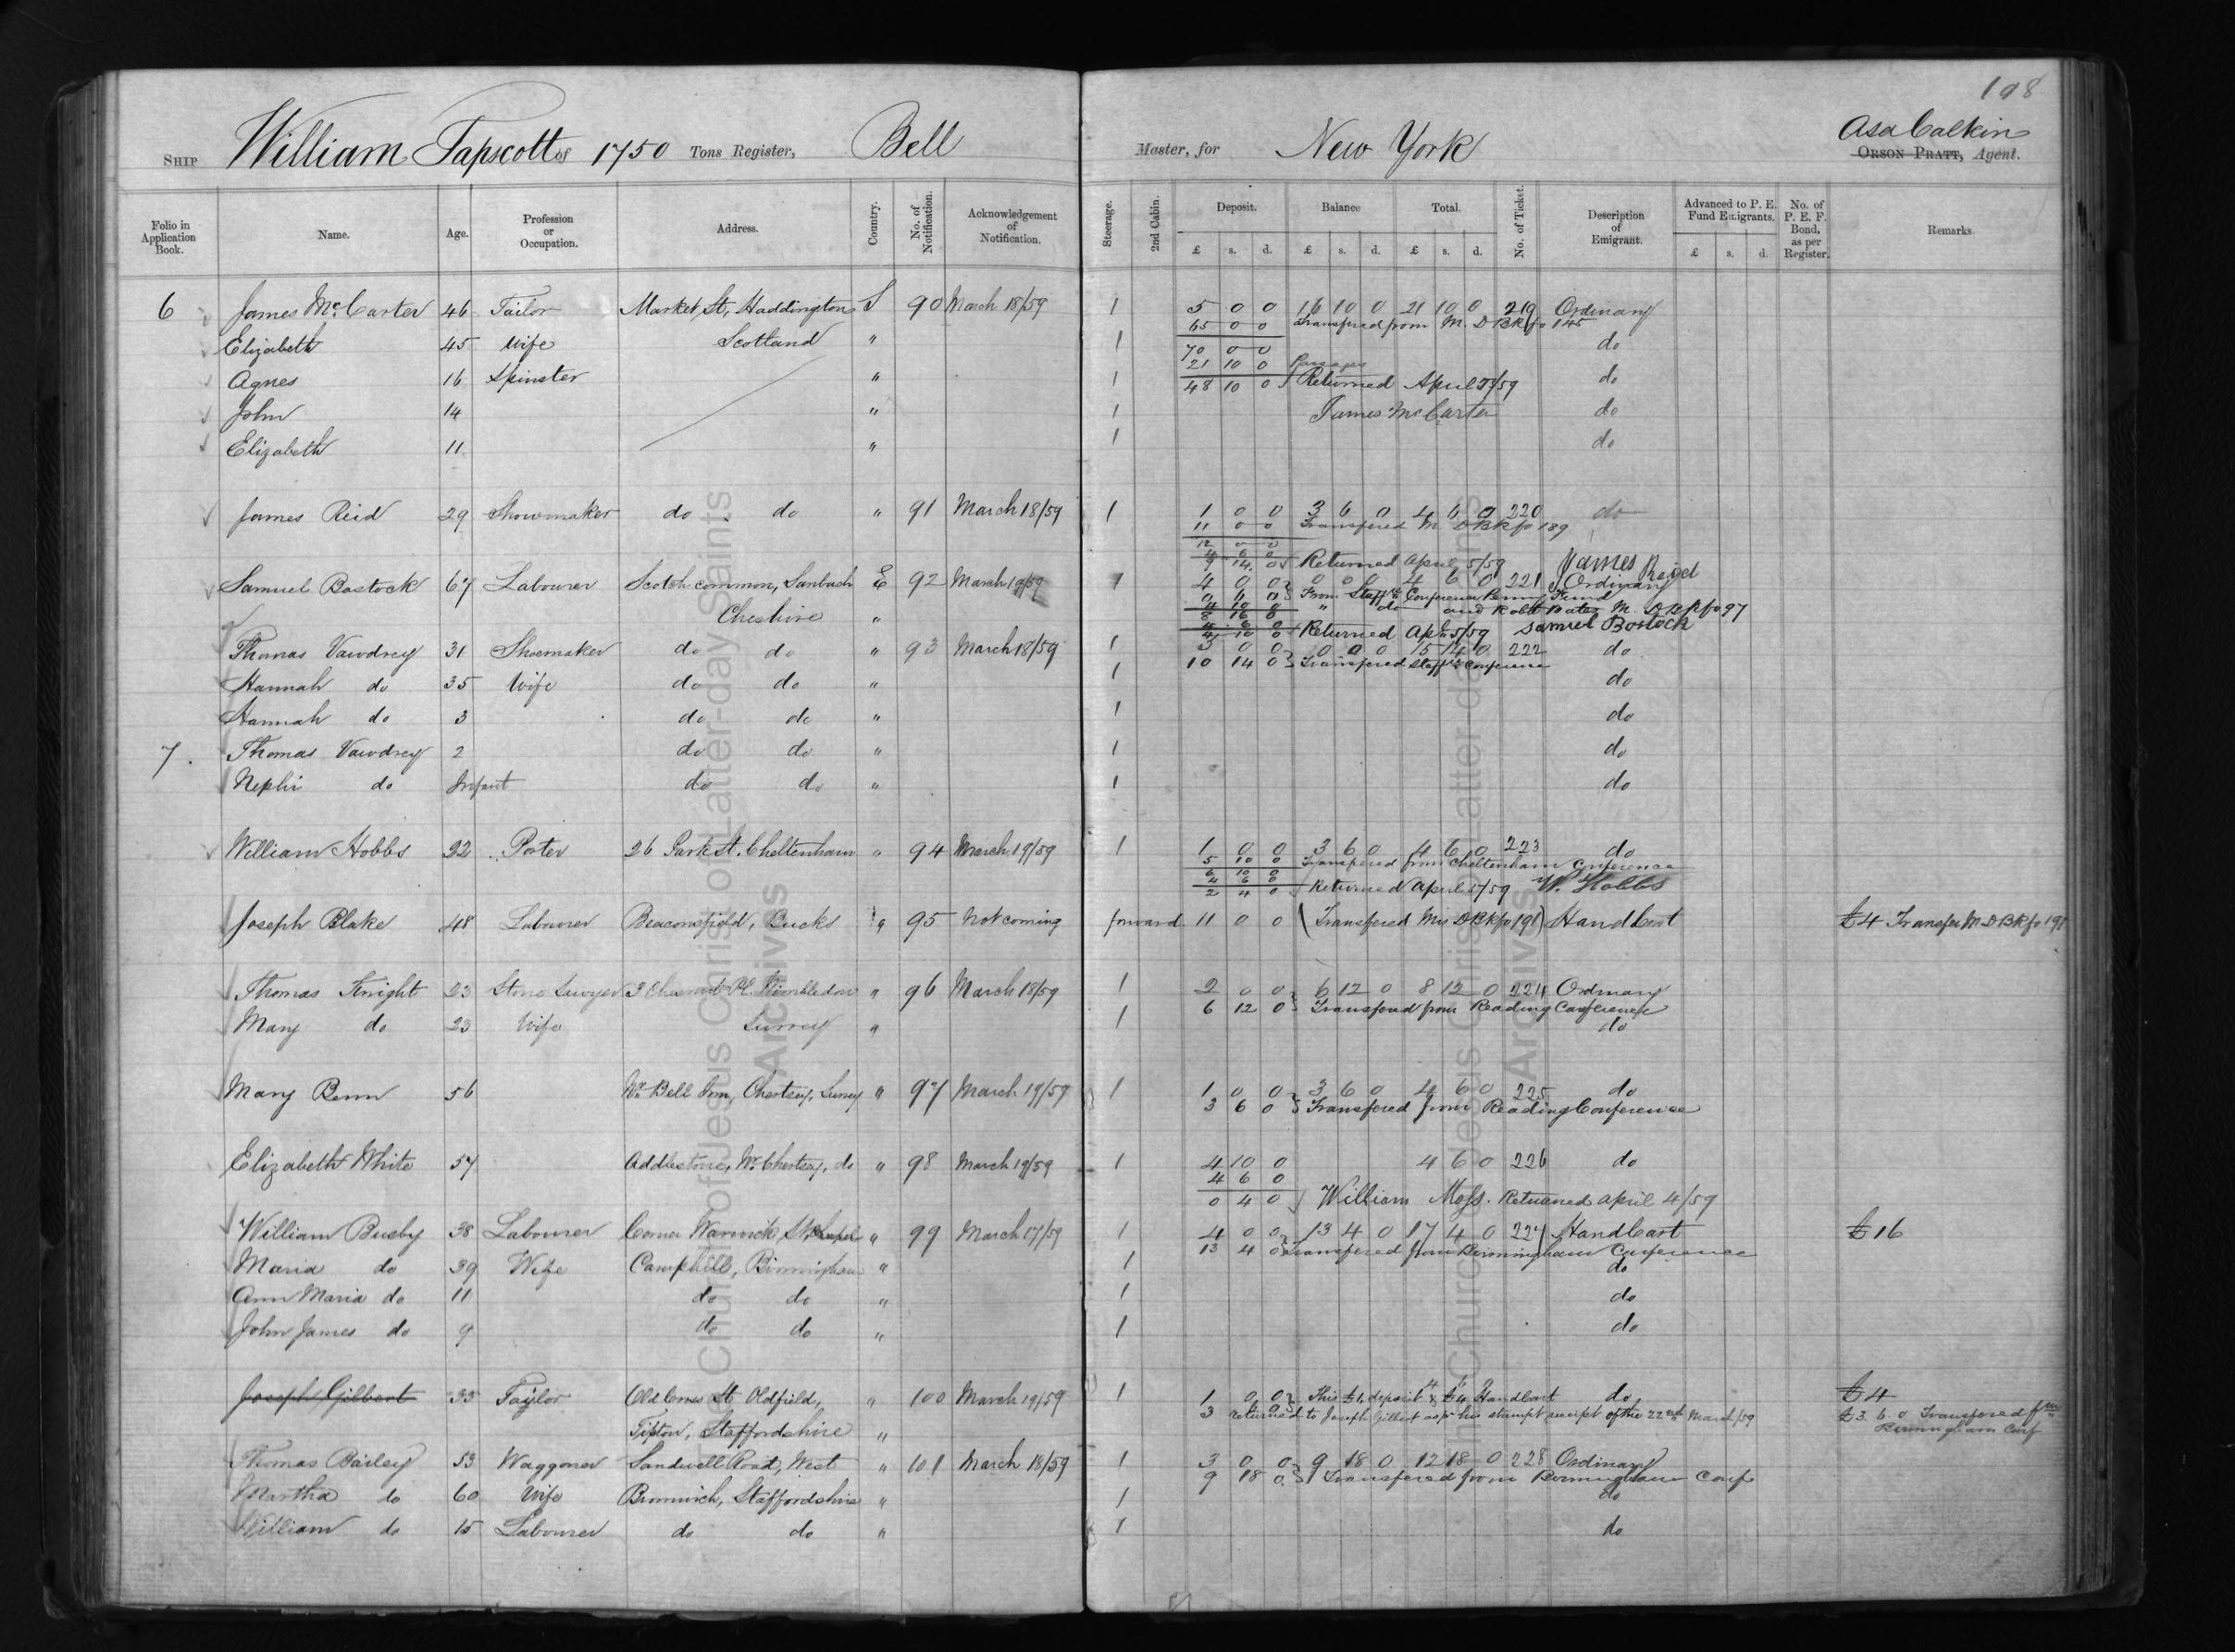 198
Ship William Tapscott of 1750 Tons Register, Bell Master, for New York Asa Calkin
Orson Pratt, Agent.
Folio in Application Book. Name. Age. Profession or Occupation. Address. Country. No. of Notification. Acknowledgement of Notification. Steerage. 2nd Cabin. Deposit. Balance Total. No. of Ticket. Description of Emigrant. Advanced to P. E. Fund Emigrants. No. of P. E. F. Bond, as per Register. Remarks
£ s. d. £ s. d. £ s. d. £ s. d.
6 James McCarter 46 Tailor Market St, Haddington S 90 March 18/59 1 5 0 0 16 10 0 21 10 0 219 Ordinary
65 0 0 Transfered from M. D Bk fo 145
Elizabeth 45 Wife Scotland " 1 70 0 0 do
21 10 0 Passages
Agnes 16 Spinster " 1 48 10 0 Returned April 5/59 do
John 14 " 1 James McCarter do
Elizabeth 11 " 1 do
James Reid 29 Showmaker do do " 91 March 18/59 1 1 0 0 3 6 0 4 6 0 220 do
11 0 0 Transfered M. D Bk fo 189
12 0 0
4 6 0
7 14 0 Returned April 5/59 James Reid
Samuel Bostock 67 Labourer Scotch common, Sanbach E 92 March 19/59 1 4 0 0 0 0 0 4 6 0 221 Ordinary
0 6 0 From Staffe Conference Penny Fund
Cheshire " 4 10 0 " do and Robt Bates M. D Bk fo 97
8 16 0
4 6 0
4 10 0 Returned Apl 5/59 Samuel Bostock
Thomas Vawdrey 31 Shoemaker do do " 93 March 18/59 1 5 0 0 0 0 0 15 14 0 222 do
10 14 0 Transfered Staffe Conference
Hannah do 35 Wife do do " 1 do
Hannah do 3 do do " 1 do
7. Thomas Vawdrey 2 do do " 1 do
Nephi do Infant do do " 1 do
William Hobbs 22 Porter 26 Park St. Cheltenham " 94 March 19/59 1 1 0 0 3 6 0 4 6 0 223 do
5 10 0 Transfered from Cheltenham Conference
6 10 0
4 6 0
2 4 0 Returned April 5/59 W. Hobbs
Joseph Blake 48 Labourer Beaconsfield, Bucks " 95 Not coming forward 11 0 0 (Transfered Mis D Bk fo 191) Hand Cart £4 Transfer M. D Bk fo 191
Thomas Knight 23 Stone Sawyer 3 Pl. Wimbledon " 96 March 18/59 1 2 0 0 6 12 0 8 12 0 224 Ordinary
6 12 0 Transfered from Reading Conference
Mary do 23 Wife Surrey " 1 do
Mary Benn 56 Nr Bell Inn, Chertsey, Surrey " 97 March 19/59 1 1 0 0 3 6 0 4 6 0 225 do
3 6 0 Transfered from Reading Conference
Elizabeth White 57 Addlestone, Nr Chertsey, do " 98 March 19/59 1 4 10 0 4 6 0 226 do
4 6 0
0 4 0 William Moss. Returned April 4/59
William Busby 38 Labourer Corner Warwick St " 99 March 17/59 1 4 0 0 13 4 0 17 4 0 227 Hand Cart £16
13 4 0 Transfered from Birmingham Conference
Maria do 39 Wife Camphill, Birmingham " 1 do
Ann Maria do 11 do do " 1 do
John James do 9 do do " 1 do
Joseph Gilbert 33 Taylor Old Cross St Oldfield, " 100 March 19/59 1 1 0 0 This £1, deposit & £4 Handcart do £4
3 returned to Joseph Gilbert as pr his stampt receipt of the 22nd March/59 £3. 6. 0 Transfered fm
Tipton, Staffordshire " Birmingham Conf
Thomas Bailey 53 Waggoner Sandwell Road, West " 101 March 18/59 1 3 0 0 9 18 0 12 18 0 228 Ordinary
9 18 0 Transfered from Birmingham Conf
Martha do 60 Wife Bromwich, Staffordshire " 1 do
William do 15 Labourer do do " 1 do
Church of Jesus Christ of Latter-day Saints
Archives
Church of Jesus Christ of Latter-day Saints
Archives